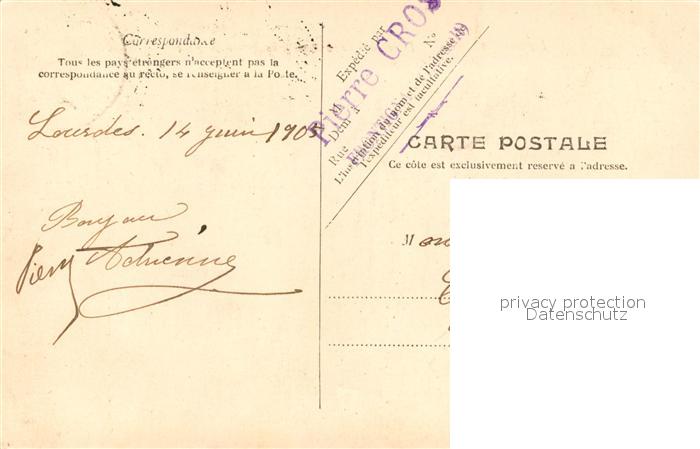 Correspondance
Tous les pays étrangers n'acceptent pas la
correspondance au recto, se renseigner à la Poste.
Lourdes. 14 juin 1905
Bonjour
Pierre Adrienne
Expédié par
M
Pierre CROS
Demt à
Rue No
L'inscription du nom et de l'adresse de
l'expéditeur est facultative.
CARTE POSTALE
Ce côté est exclusivement reservé a l'adresse.
M
privacy protection
Datenschutz